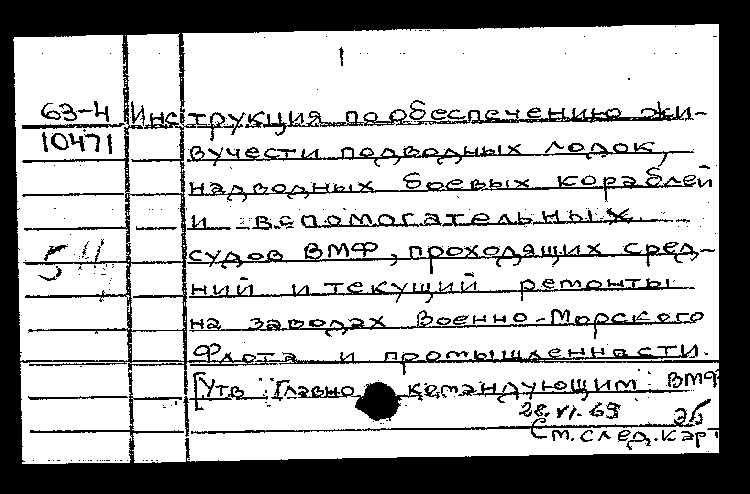 1
63-4 Инструкция по обеспечению жи-
10471 вучести подводных лодок,
надводных боевых кораблей
и вспомогательных
судов ВМФ, проходящих сред-
ний и текущий ремонты
на заводах Военно-Морского
Флота и промышленности.
[Утв Главно командующим ВМФ
28.VI.63
См. след. карт